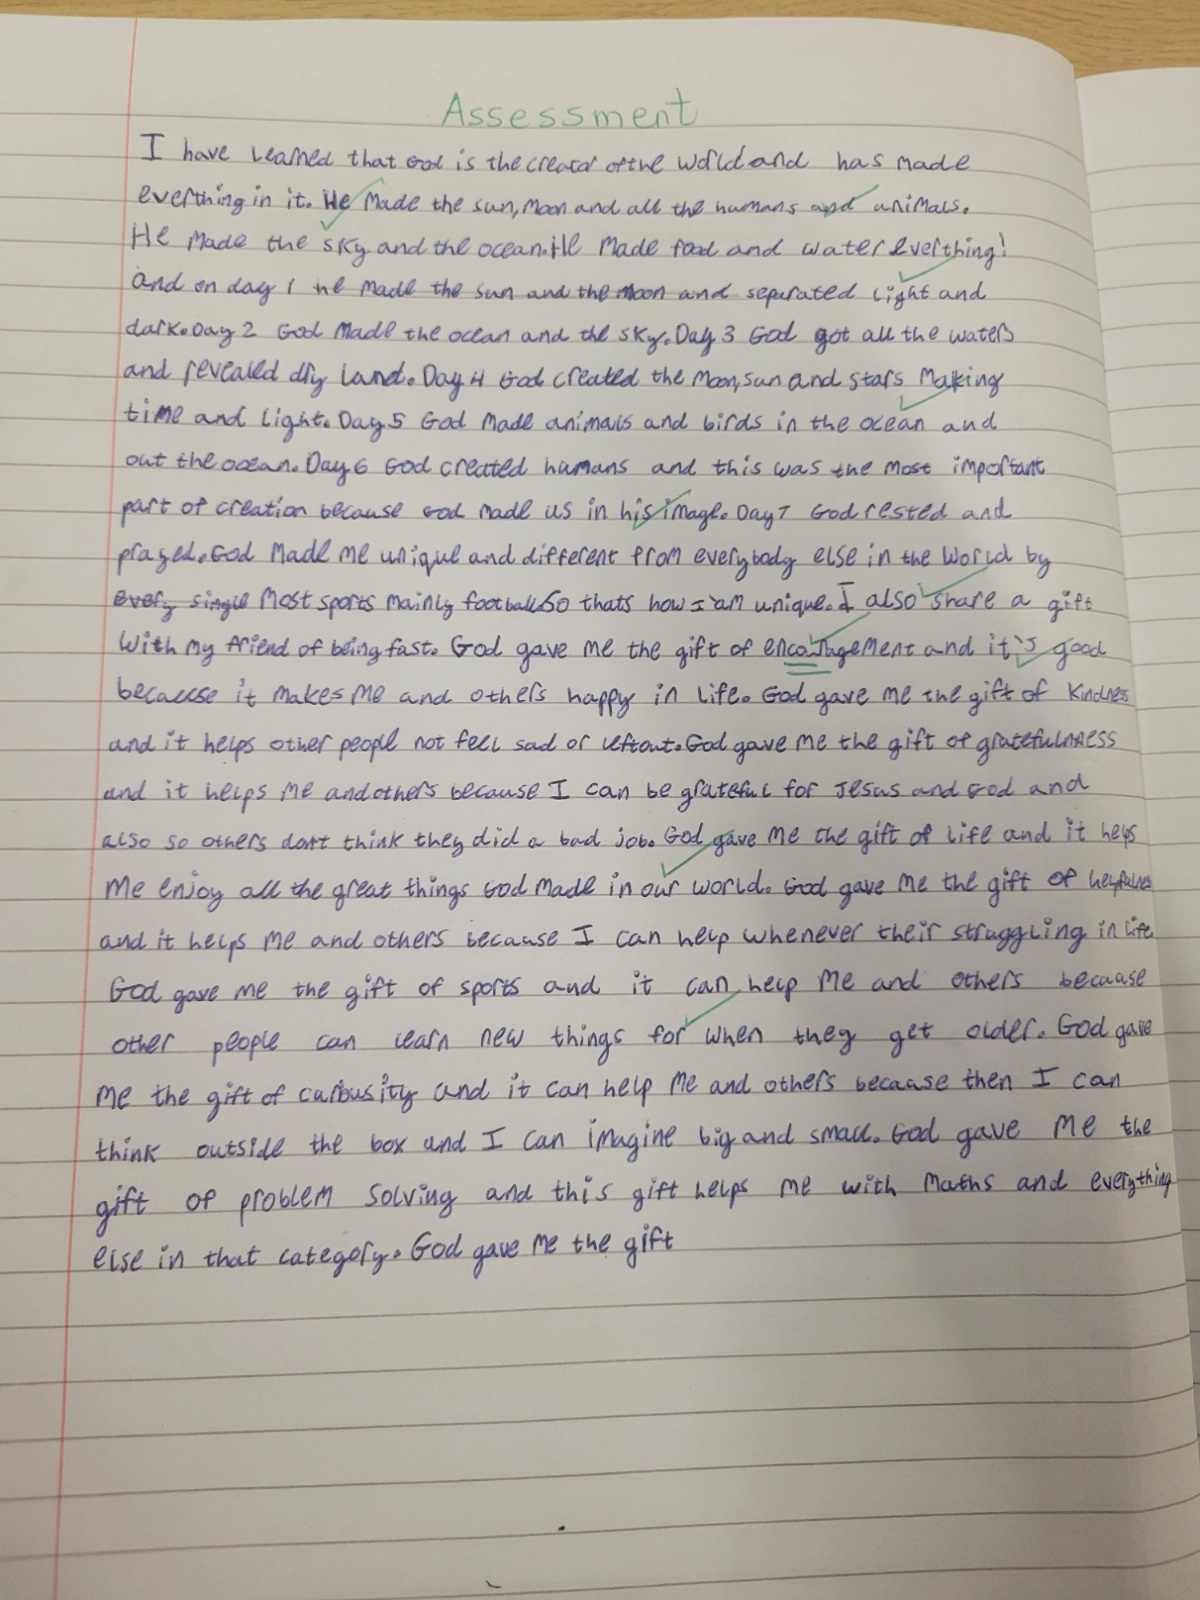 Assessment
I have learned that God is the creator of the world and has made
everthing in it. He made the sun, moon and all the humans and animals.
He made the sky and the ocean. He made food and water everthing!
and on day 1 he made the sun and the moon and separated light and
dark. Day 2 God made the ocean and the sky. Day 3 God got all the waters
and revealed dry land. Day 4 God created the moon, sun and stars making
time and light. Day 5 God made animals and birds in the ocean and
out the ocean. Day 6 God created humans and this was the most important
part of creation because God made us in his image. Day 7 God rested and
prayed. God made me unique and different from everybody else in the world by
every single most sports mainly football So thats how I am unique. I also share a gift
with my friend of being fast. God gave me the gift of encouragement and it's good
because it makes me and others happy in life. God gave me the gift of kindness
and it helps other people not feel sad or leftout. God gave me the gift of gratefulness
and it helps me and others because I can be grateful for Jesus and God and
also so others don't think they did a bad job. God gave me the gift of life and it helps
me enjoy all the great things God made in our world. God gave me the gift of
and it helps me and others because I can help whenever their struggling in life
God gave me the gift of sports and it can help me and others because
other people can learn new things for when they get older. God gave
me the gift of and it can help me and others because then I can
think outside the box and I can imagine big and small. God gave me the
gift of problem solving and this gift helps me with maths and everything
else in that category. God gave me the gift